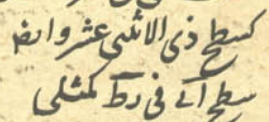 كسطح ذى الاثنى عشر وايضا
سطح آ فى د ط كمثلى